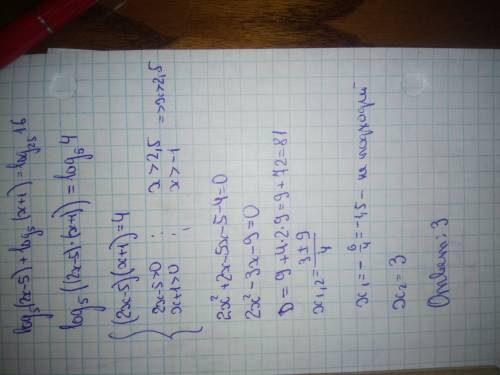 log₅(2x-5)+log₅(x+1)=log₂₅16
log₅((2x-5)·(x+1))=log₅4
{(2x-5)(x+1)=4
2x-5>0 ; x>2,5
x+1>0 ; x>-1 =>x>2,5
2x²+2x-5x-5-4=0
2x²-3x-9=0
D=9+4·2·9=9+72=81
x₁,₂=(3±9)/4
x₁=-6/4=-1,5 - не подходит
x₂=3
Ответ: 3